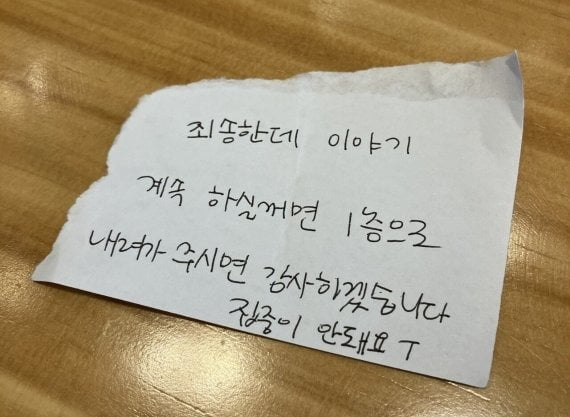 죄송한데 이야기
계속 하실꺼면 1층으로
내려가 주시면 감사하겠습니다
집중이 안돼요 ㅜ